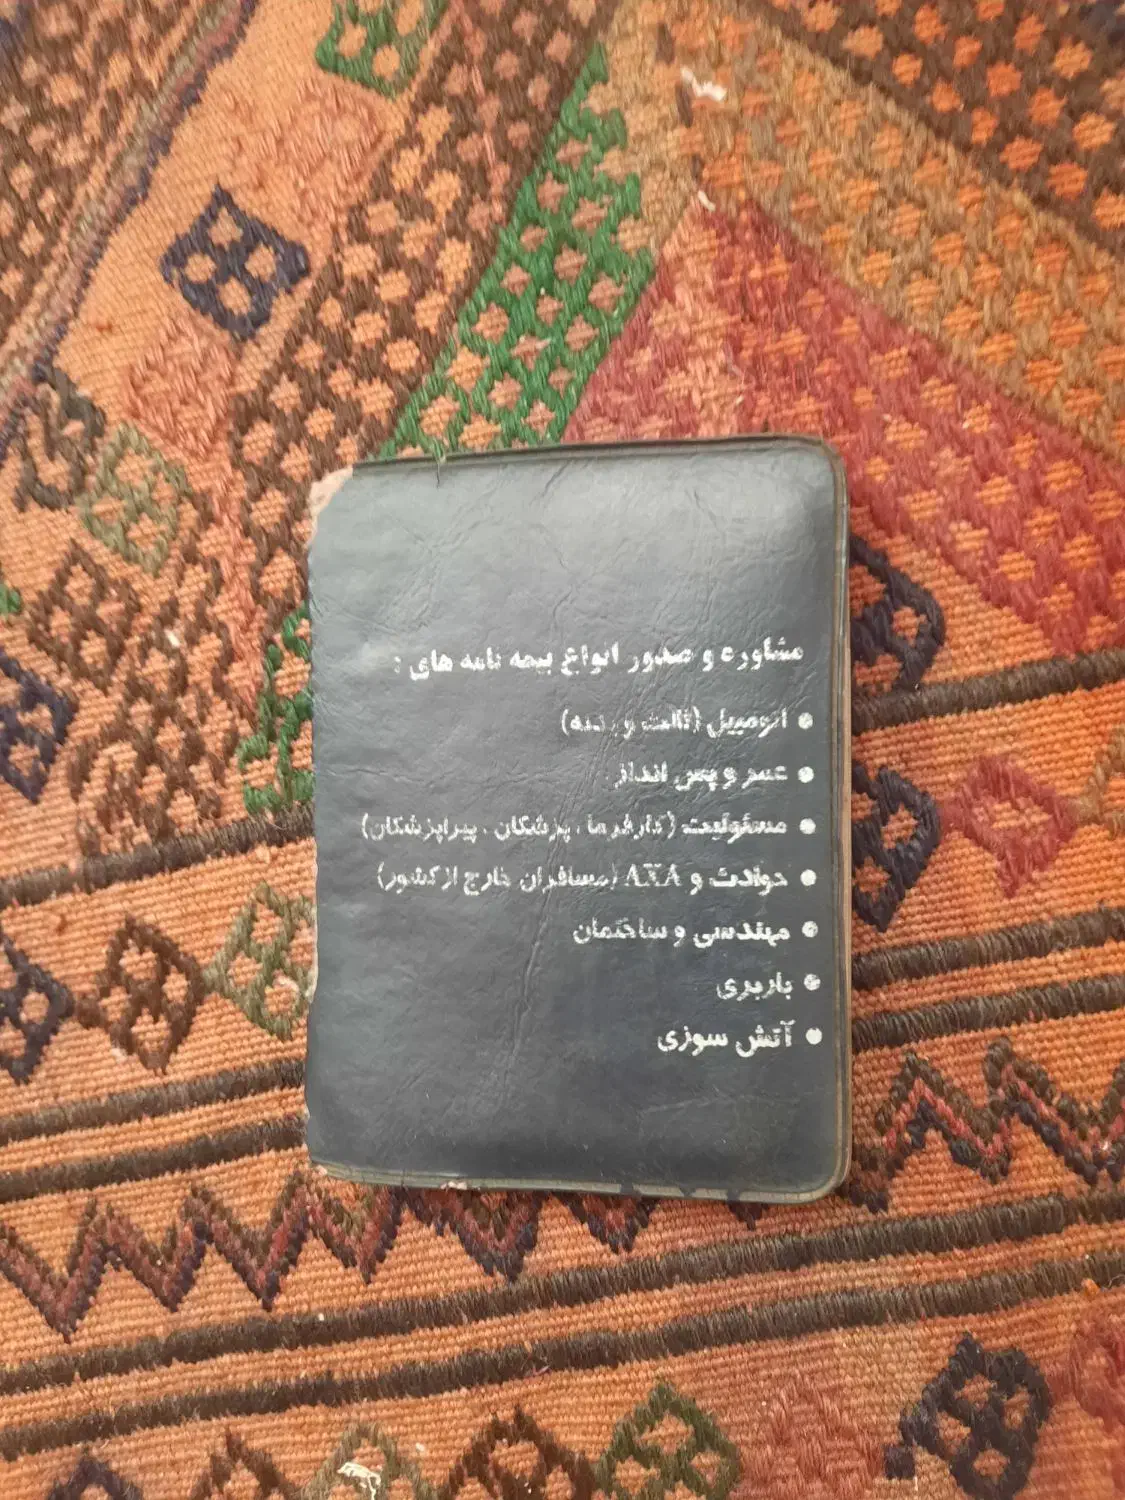 مشاوره و صدور انواع بیمه نامه های :
• اتومبیل (ثالث و بدنه)
• عمر و پس انداز
• مسئولیت (کارفرما ، پزشکان ، پیراپزشکان)
• حوادث و AXA (مسافران خارج از کشور)
• مهندسی و ساختمان
• باربری
• آتش سوزی